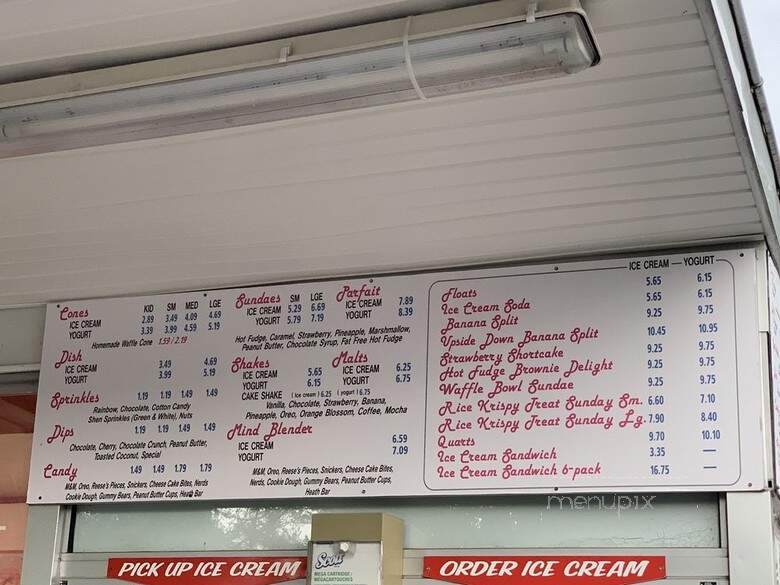 Cones KID SM MED LGE
ICE CREAM 2.89 3.49 4.09 4.69
YOGURT 3.39 3.99 4.59 5.19
Homemade Waffle Cone 1.59 / 2.19
Dish
ICE CREAM 3.49 4.69
YOGURT 3.99 5.19
Sprinkles 1.19 1.19 1.49 1.49
Rainbow, Chocolate, Cotton Candy
Shen Sprinkles (Green & White), Nuts
Dips 1.19 1.19 1.49 1.49
Chocolate, Cherry, Chocolate Crunch, Peanut Butter,
Toasted Coconut, Special
Candy 1.49 1.49 1.79 1.79
M&M, Oreo, Reese's Pieces, Snickers, Cheese Cake Bites, Nerds
Cookie Dough, Gummy Bears, Peanut Butter Cups, Heath Bar
Sundaes SM LGE
ICE CREAM 5.29 6.69
YOGURT 5.79 7.19
Parfait
ICE CREAM 7.89
YOGURT 8.39
Hot Fudge, Caramel, Strawberry, Pineapple, Marshmallow,
Peanut Butter, Chocolate Syrup, Fat Free Hot Fudge
Shakes
ICE CREAM 5.65
YOGURT 6.15
Malts
ICE CREAM 6.25
YOGURT 6.75
CAKE SHAKE ( Ice cream ) 6.25 ( yogurt ) 6.75
Vanilla, Chocolate, Strawberry, Banana,
Pineapple, Oreo, Orange Blossom, Coffee, Mocha
Mind Blender
ICE CREAM 6.59
YOGURT 7.09
M&M, Oreo, Reese's Pieces, Snickers, Cheese Cake Bites,
Nerds, Cookie Dough, Gummy Bears, Peanut Butter Cups,
Heath Bar
ICE CREAM — YOGURT
Floats 5.65 6.15
Ice Cream Soda 5.65 6.15
Banana Split 9.25 9.75
Upside Down Banana Split 10.45 10.95
Strawberry Shortcake 9.25 9.75
Hot Fudge Brownie Delight 9.25 9.75
Waffle Bowl Sundae 9.25 9.75
Rice Krispy Treat Sunday Sm. 6.60 7.10
Rice Krispy Treat Sunday Lg. 7.90 8.40
Quarts 9.70 10.10
Ice Cream Sandwich 3.35 —
Ice Cream Sandwich 6-pack 16.75 —
menupix
PICK UP ICE CREAM
Scott
MEGA CARTRIDGE
MEGACARTOUCHES
ORDER ICE CREAM